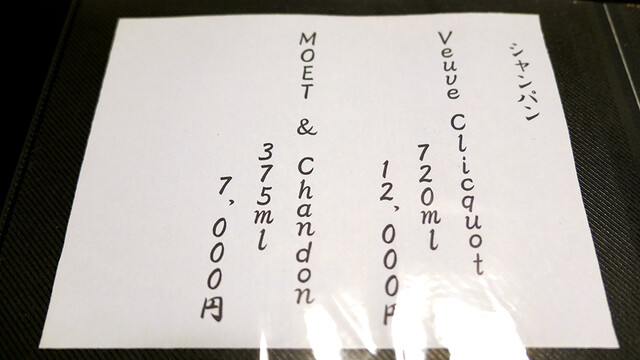 シャンパン
Veuve Clicquot
720ml
12,000円
MOET & Chandon
375ml
7,000円